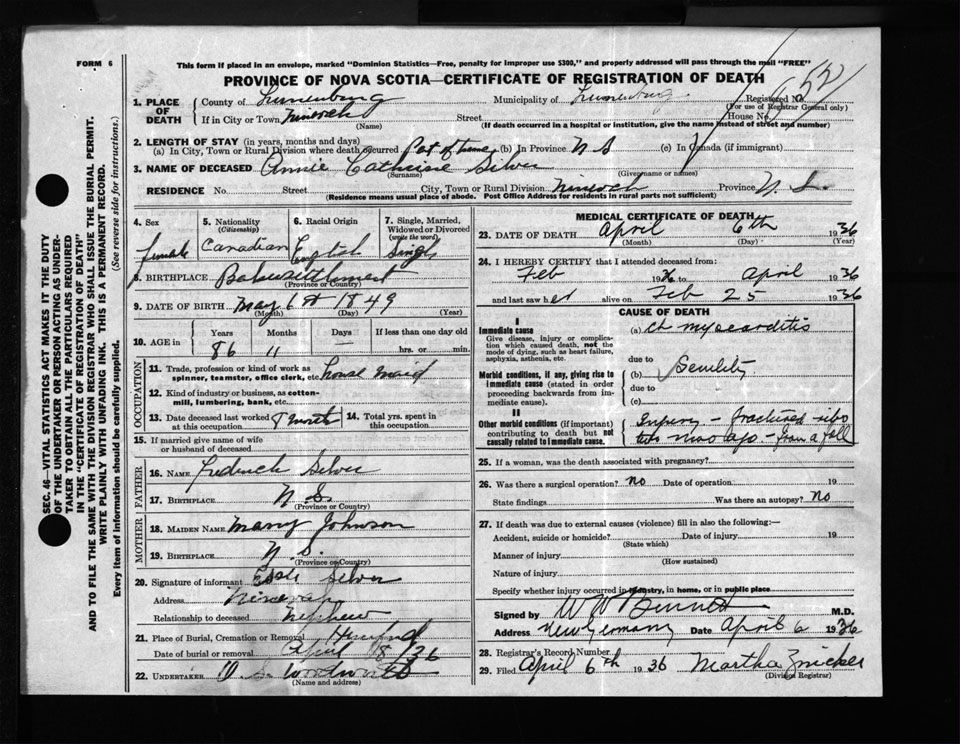 FORM 6
This form if placed in an envelope, marked "Dominion Statistics—Free, penalty for improper use $300," and properly addressed will pass through the mail "FREE"
PROVINCE OF NOVA SCOTIA—CERTIFICATE OF REGISTRATION OF DEATH
1. PLACE OF DEATH
County of Lunenburg Municipality of Lunenburg Registered No.
(For use of Registrar General only)
If in City or Town Street House No.
(Name) (If death occurred in a hospital or institution, give the name instead of street and number)
2. LENGTH OF STAY (in years, months and days)
(a) In City, Town or Rural Division where death occurred (b) In Province N S (c) In Canada (if immigrant)
3. NAME OF DECEASED Annie Catherine Silver
(Surname) (Given name or names)
RESIDENCE No. Street City, Town or Rural Division Province N. S.
(Residence means usual place of abode. Post Office Address for residents in rural parts not sufficient)
4. Sex
female
5. Nationality
(Citizenship)
Canadian
6. Racial Origin
English
7. Single, Married, Widowed or Divorced
(write the word)
Single
8. BIRTHPLACE
(Province or Country)
9. DATE OF BIRTH May 6th 1849
(Month) (Day) (Year)
10. AGE in
Years Months Days If less than one day old
86 11 — hrs. or min.
OCCUPATION
11. Trade, profession or kind of work as spinner, teamster, office clerk, etc. house maid
12. Kind of industry or business, as cotton-mill, lumbering, bank, etc.
13. Date deceased last worked at this occupation
14. Total yrs. spent in this occupation
15. If married give name of wife or husband of deceased
FATHER
16. NAME Silver
17. BIRTHPLACE N S
(Province or Country)
MOTHER
18. MAIDEN NAME Mary Johnson
19. BIRTHPLACE N. S.
(Province or Country)
20. Signature of informant Silver
Address
Relationship to deceased Nephew
21. Place of Burial, Cremation or Removal
Date of burial or removal April 8/36
22. UNDERTAKER
(Name and address)
MEDICAL CERTIFICATE OF DEATH
23. DATE OF DEATH April 6th 1936
(Month) (Day) (Year)
24. I HEREBY CERTIFY that I attended deceased from:
Feb 1936 to April 1936
and last saw her alive on Feb 25 1936
CAUSE OF DEATH
I
Immediate cause
Give disease, injury or complication which caused death, not the mode of dying, such as heart failure, asphyxia, asthenia, etc.
(a) ch myocarditis
due to
Morbid conditions, if any, giving rise to immediate cause (stated in order proceeding backwards from immediate cause).
(b) Senility
due to
(c)
II
Other morbid conditions (if important) contributing to death but not causally related to immediate cause.
Injury – fractured ribs
two mos ago – from a fall
25. If a woman, was the death associated with pregnancy?
26. Was there a surgical operation? No Date of operation 19
State findings Was there an autopsy? No
27. If death was due to external causes (violence) fill in also the following:—
Accident, suicide or homicide? Date of injury 19
(State which)
Manner of injury
(How sustained)
Nature of injury
Specify whether injury occurred in industry, in home, or in public place
Signed by M.D.
Address New Germany Date April 6 1936
28. Registrar's Record Number
29. Filed April 6th 1936 Martha Zwicker
(Division Registrar)
SEC. 46—VITAL STATISTICS ACT MAKES IT THE DUTY
OF THE UNDERTAKER OR PERSON ACTING AS UNDER-
TAKER TO OBTAIN ALL THE PARTICULARS REQUIRED
IN THE "CERTIFICATE OF REGISTRATION OF DEATH"
AND TO FILE THE SAME WITH THE DIVISION REGISTRAR WHO SHALL ISSUE THE BURIAL PERMIT.
WRITE PLAINLY WITH UNFADING INK. THIS IS A PERMANENT RECORD.
Every item of information should be carefully supplied. (See reverse side for instructions.)